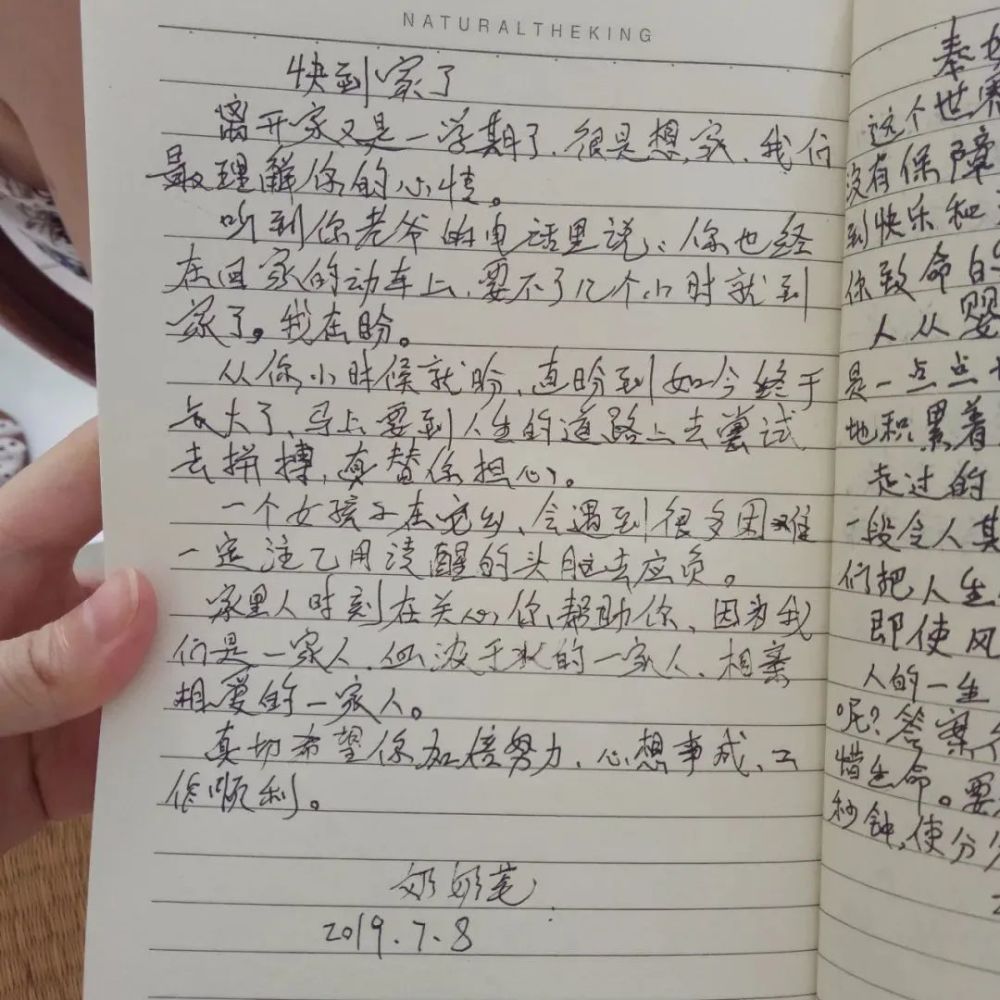 NATURALTHEKING
快到家了
离开家又是一学期了、很是想家、我们
最理解你的心情。
听到你老爷的电话里说：你也经
在回家的动车上、要不了几个小时就到
家了。我在盼。
从你小时候就盼、直盼到如今终于
长大了、马上要到人生的道路上去尝试
去拼搏，真替你担心。
一个女孩子在宅乡、会遇到很多困难
一定注乙用清醒的头脑去应负。
家里人时刻在关心你、帮助你、因为我
们是一家人、血浓于水的一家人、相亲
相爱的一家人。
真切希望你加倍努力、心想事成、工
作顺利。
奶奶笔
2019.7.8
奉
这个世界
没有保障
到快乐和
你致命的
人从婴
是一点点
地积累着
走过的
一段令人
们把人生
即使风
人的一生
呢？答案
惜生命。要
秒钟，使分